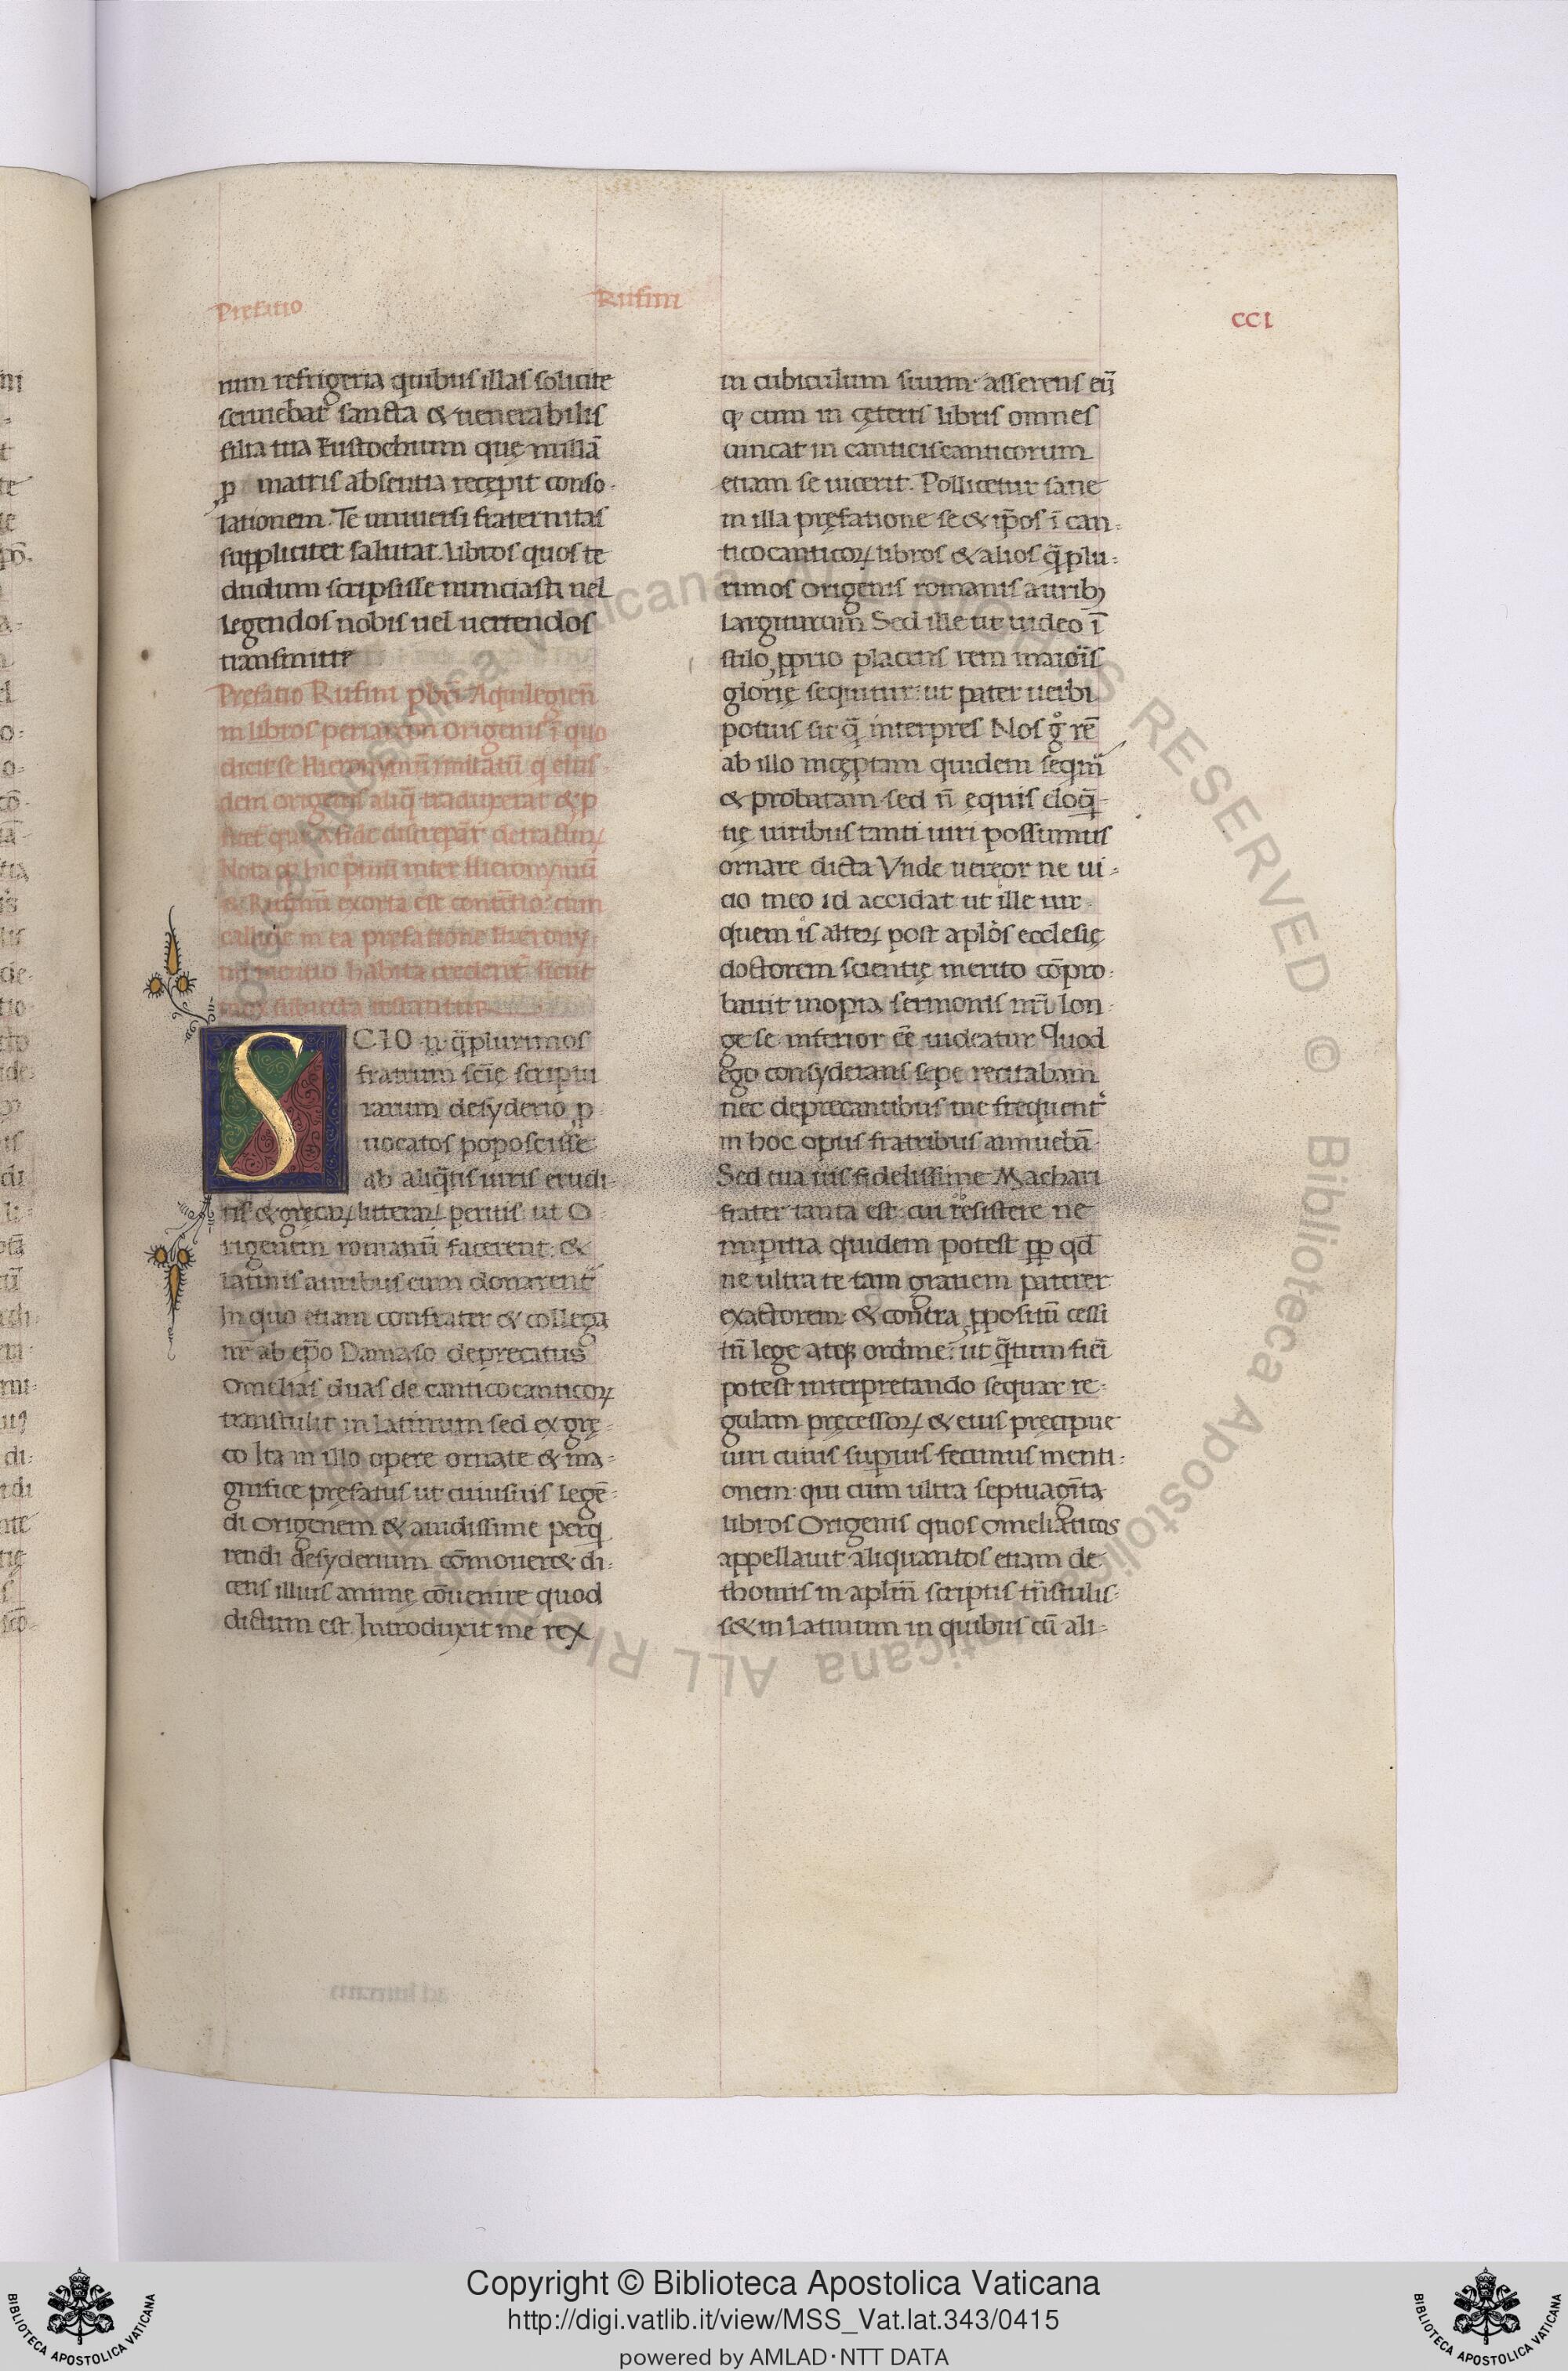 Prefatio Rufini
CCI
rum refrigeria quibus illas solicite
seruiebat᷑ sancta & uenerabilis
filia tua Eustochium quę nullā
ꝓ matris absentia recępit conso-
lationem. Te uniuersi fraternitas
suppliciter salutat. Libros quos te
dudum scripsisse nunciasti uel
legendos nobis uel uertendos
transmitte
Pręfatio Rufini pƀri Aquilegieñ
in libros periarcon origenis ī quo
dicit se Hieronymū imitatū q̇ eius-
dem origenis aliq̄ traduxerat & ꝑ
Nota ꝙ hic primū inter Hieronymū
& Rufinū exorta est contētio: cum
callide in ea prefatione Hierony
mi mentio habita crederet᷑ sicut
SCIO. ꝙ q̄plurimos
fratrum scīę scriptu
rarum desyderio ꝓ
uocatos poposcisse
ab aliq̄tis uiris erudi-
tis & gręcaꝝ litteraꝝ peritis: ut O-
rigenem romanū facerent: &
latinis auribus eum donarent
In quo etiam confrater & collega
nr̄ ab ep̄o Damaso deprecatus
Omelias duas de cantico canticoꝝ
transtulit in latinum sed ex grę-
co Ita in illo opere ornate & ma-
gnifice pręfatus ut cuiusuis legē-
di Origenem & auidissime perq̄
rendi desyderium cōmoueret di-
cens illius animę cōuenire quod
dictum est. Introduxit me rex
in cubiculum suum: asserens eū
ꝙ cum in cęteris libris omnes
uincat in canticis canticorum
etiam se uicerit. Pollicetur sane
in illa pręfatione se & ip̄os ī can-
tico canticoꝝ libros & alios q̄plu-
rimos origenis romanis auribꝫ
largiturum Sed ille ut uideo ī
stilo ꝓprio placens rem maioris
glorię sequitur: ut pater uerbi
potius sit q̄ interpres Nos gͦ rē
ab illo incęptam quidem seqmur
& probatam sed ñ ęquis eloq̄-
tię uiribus tanti uiri possumus
ornare dicta Vnde uereor ne ui-
cio meo id accidat: ut ille uir
quem is alteꝝ post aplōs ecclesię
doctorem scientię merito cōpro-
bauit inopia sermonis nrī lon-
ge se inferior eē uideatur. Quod
ego consyderans sepe recitabam
nec deprecantibus me frequent᷑
in hoc opus fratribus annuebā
Sed tua uis fidelissime Machari
frater tanta est: cui resistere ne
impitia quidem potest ꝓp qd̄
ne ultra te tam grauem paterer
exactorem: & contra ꝓpositū cessi
tñ lege atqꝫ ordine: ut q̄tum fieri
potest interpretando sequar re-
gulam pręcessoꝝ & eius precipue
uiri cuius supius fecimus menti-
onem: qui cum ultra septuagīta
libros Origenis quos omeliaticos
appellauit aliquantos etiam de
thomis in aplm̄ scriptis trāstulis-
set in latinum in quibus cū ali-
Copyright © Biblioteca Apostolica Vaticana
http://digi.vatlib.it/view/MSS_Vat.lat.343/0415
powered by AMLAD·NTT DATA